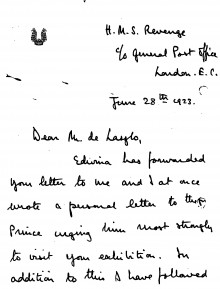 H. M. S. Revenge
c/o General Post Office
London. E. C.
June 28th 1923.
Dear M. de Laszlo,
Edwina has forwarded
your letter to me and I at once
wrote a personal letter to the
Prince urging him most strongly
to visit your exhibition. In
addition to this I have followed